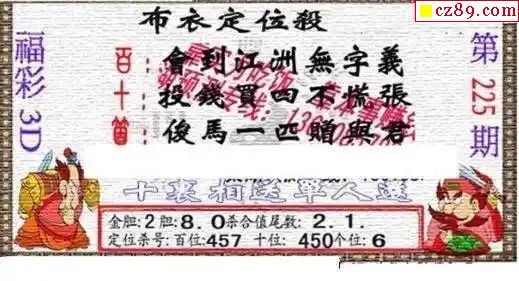 cz89.com
布衣定位殺
福彩3D
第225期
百:會到江洲無字義
十:投錢買四不慌張
箇:俊馬一匹贈與君
金胆:2胆:8.0杀合值尾数:2.1.
定位杀号:百位:457 十位:450个位:6